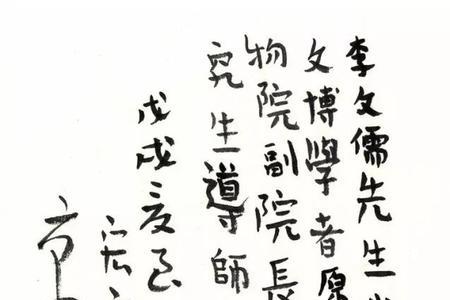 李文儒先生
文博學者原
物院副院長
究生導師
戊戌夏